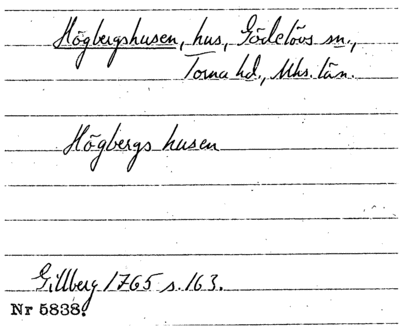 Högbergshusen, hus, Gödelövs sn.,
Torna hd., Mhs. län.
Högbergs husen
Gillberg 1765 s. 163.
Nr 5838.